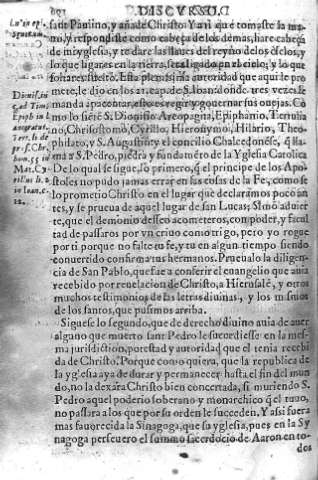 DISCURSO.
sant Paulino, y añade Christo: Y a ti que tomaste la ma
no, y respondiste como cabeça de los demas, hare cabeça
de mi yglesia, y te dare las llaues del reyno de los cielos, y
lo que ligares en la tierra, sera ligado en el cielo, y lo que
soltares suelto. Esta plenissima autoridad que aqui le pro
mete, le dio en los 21. cap. de S. Ioan: donde tres vezes le
manda apacentar, esto es regir y gouernar sus ouejas. Co
mo lo siēte S. Dionisio Areopagita, Epiphanio, Tertulia
no, Chrisostomo, Cyrillo, Hieronymo, Hilario, Theo-
philato, y S. Augustin y el concilio Chalcedonēse, q̄ lla-
ma a S. Pedro, piedra y fundamēto de la Yglesia Catolica
De lo qual se sigue, lo primero, q̄ el principe de los Apo-
stoles no pudo jamas errar en las cosas de la Fe, como se
lo prometio Christo en el lugar que declaramos poco an
tes, y se prueua de aquel lugar de san Lucas; Simō aduier
te, que el demonio desseo acometeros, con poder, y facul
tad de passaros por vn criuo como trigo, pero yo rogue
por ti porque no falte tu fe, y tu en algun tiempo siendo
conuertido confirma tus hermanos. Prueualo la diligen-
cia de San Pablo, que fue a conferir el euangelio que auia
recebido por reuelacion de Christo, a Hierusalē, y otros
muchos testimonios de las letras diuinas, y los mismos
de los santos, que pusimos arriba.
Siguese lo segundo, que de derecho diuino auia de auer
alguno que muerto sant Pedro le sucediesse en la mes-
ma jurisdiction, potestad y autoridad que el tenia recebi
da de Christo. Porque como quiera, que la republica de
la yglesia aya de durar y permanecer hasta el fin del mun
do, no la dexara Christo bien concertada, si muriendo S.
Pedro aquel poderio soberano y monarchico q̄ el tuuo,
no passara a los que por su orden le succeden. Y assi fuera
mas fauorecida la Sinagoga, que su yglesia, pues en la Sy
nagoga perseuero el summo sacerdocio de Aaron en to-
dos
Dionis.
ad Tim.
Epiph. in